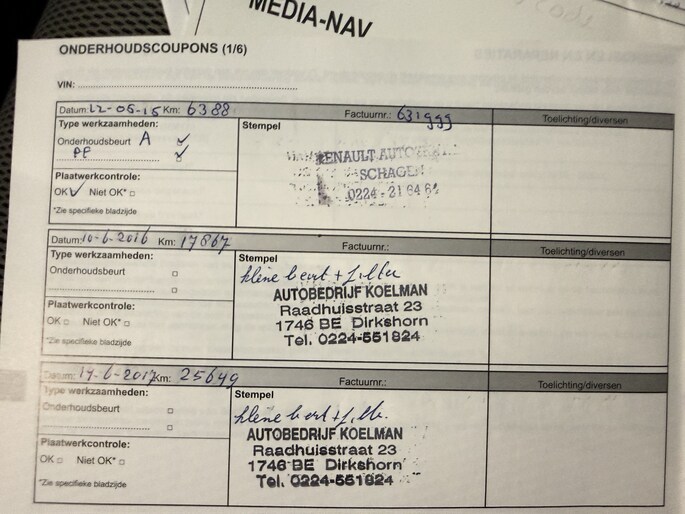 MEDIA-NAV
ONDERHOUDSCOUPONS (1/6)
VIN:
Datum: 12-05-15 Km: 6388 Factuurnr.: 631999 Toelichting/diversen
Type werkzaamheden:
Onderhoudsbeurt A ✓
PF ✓
Plaatwerkcontrole:
OK ✓ Niet OK* □
*Zie specifieke bladzijde
Stempel
RENAULT
SCHAGEN
0224 - 21 64 64
Datum: 10-6-2016 Km: 17867 Factuurnr.: Toelichting/diversen
Type werkzaamheden:
Onderhoudsbeurt □
□
Plaatwerkcontrole:
OK □ Niet OK* □
*Zie specifieke bladzijde
Stempel
kleine beurt + filter
AUTOBEDRIJF KOELMAN
Raadhuisstraat 23
1746 BE Dirkshorn
Tel. 0224-551824
Datum: 14-6-2017 Km: 25649 Factuurnr.: Toelichting/diversen
Type werkzaamheden:
Onderhoudsbeurt □
□
Plaatwerkcontrole:
OK □ Niet OK* □
*Zie specifieke bladzijde
Stempel
kleine beurt + filter.
AUTOBEDRIJF KOELMAN
Raadhuisstraat 23
1746 BE Dirkshorn
Tel. 0224-551824